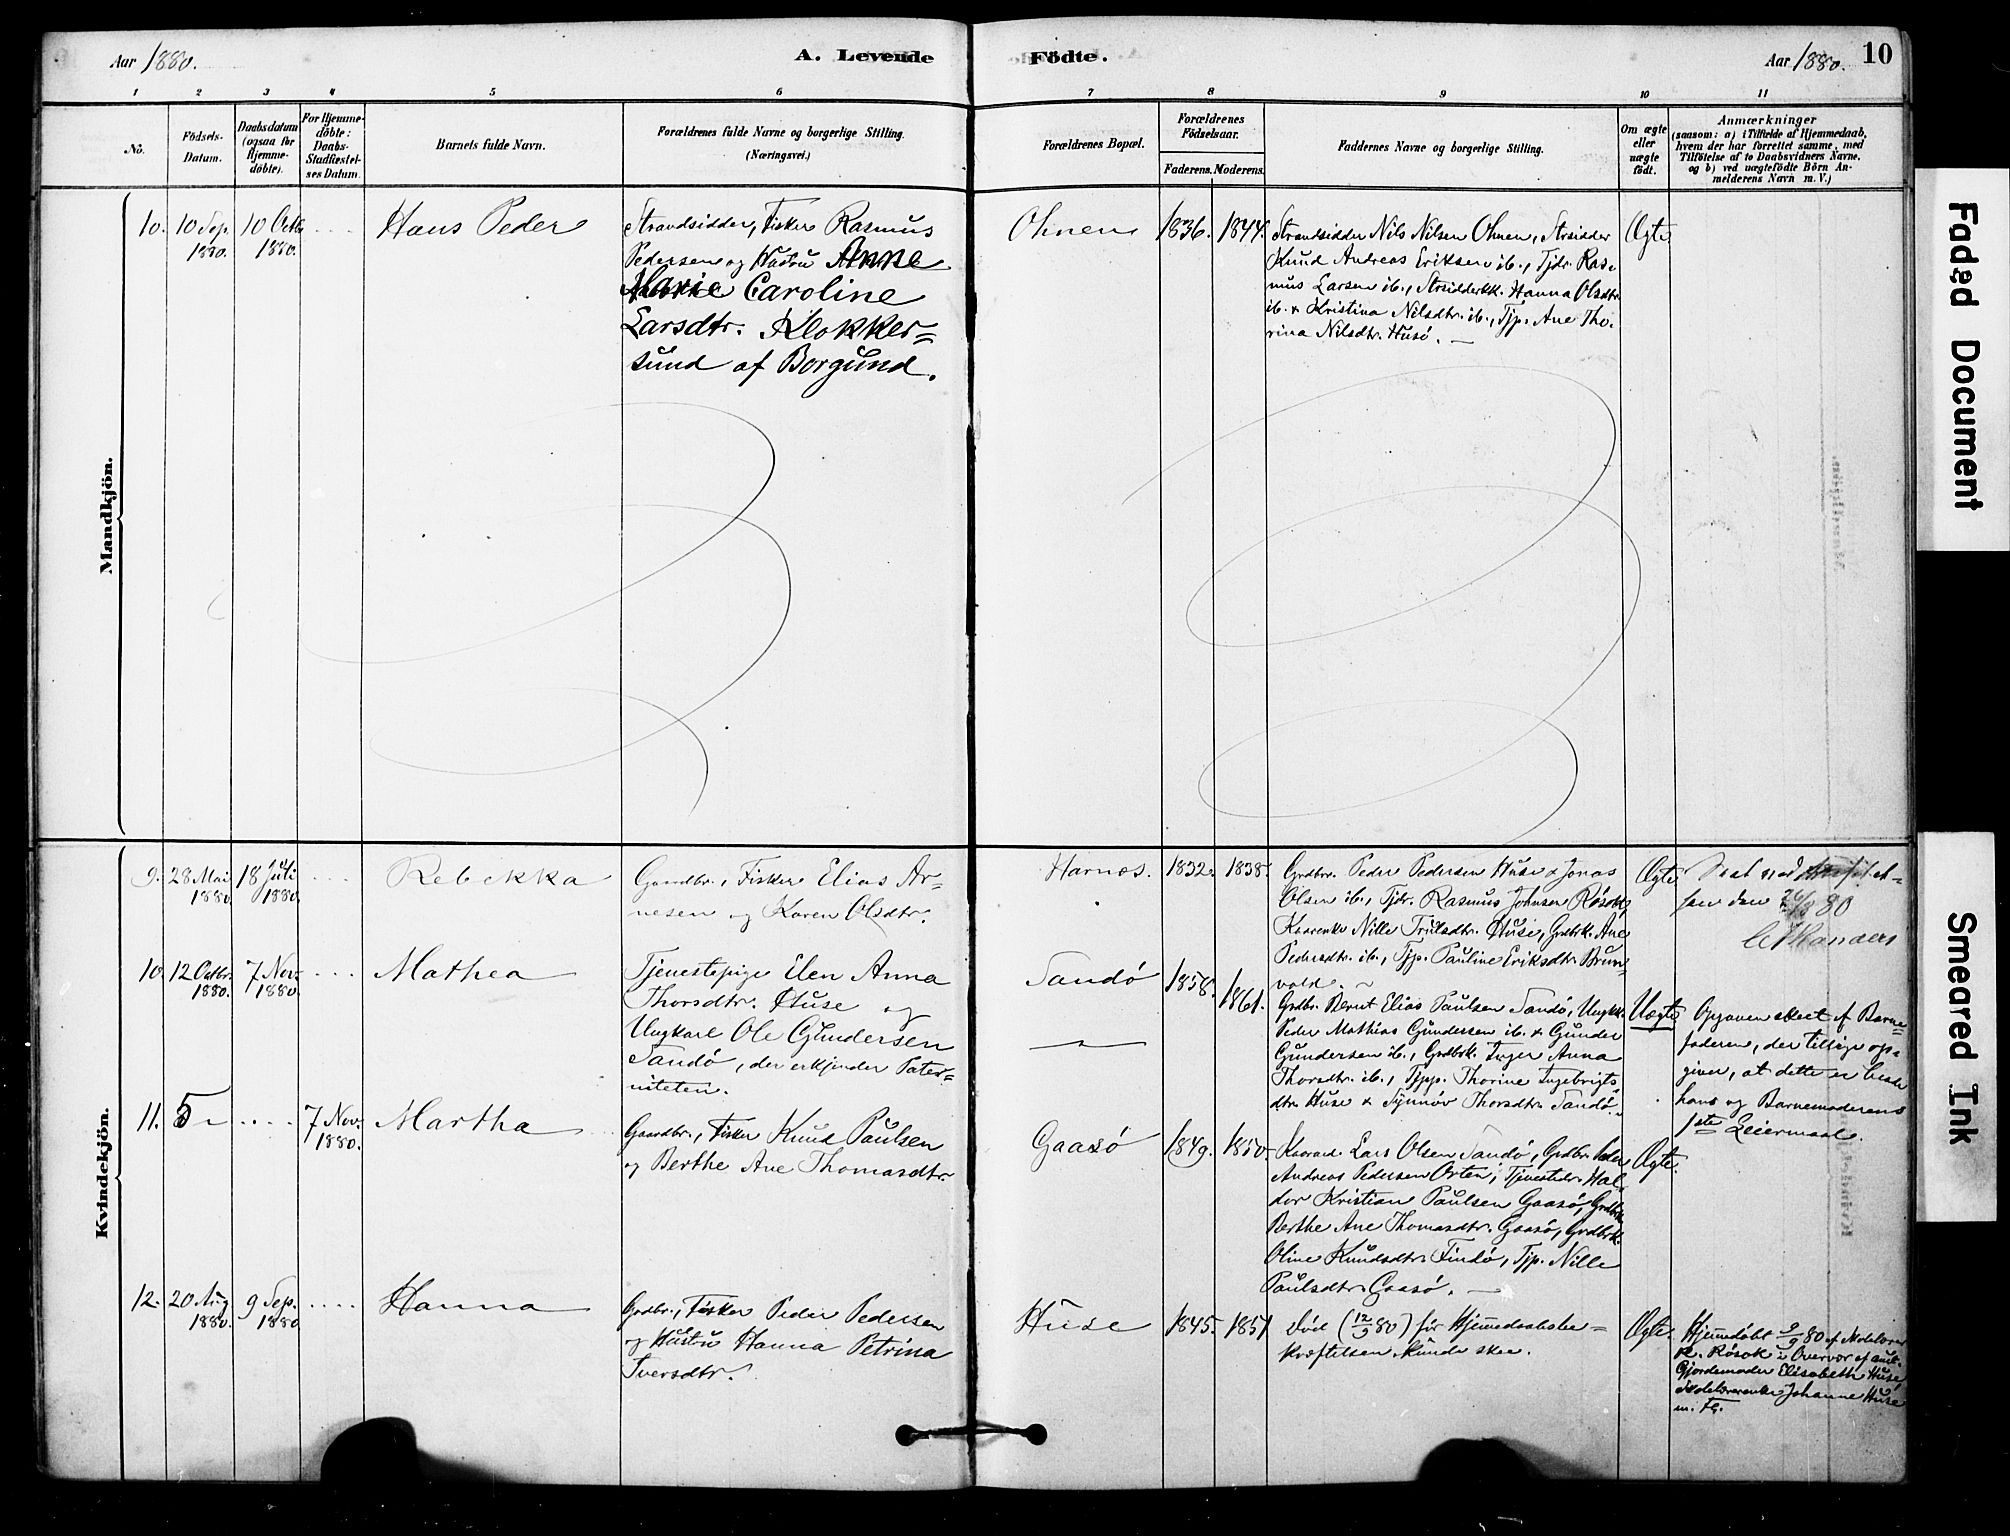 Aar 1880.
A. Levende
Födte.
Aar 1880.
10
1 2 3 4 5 6 7 8 9 10 11
No.
Födsels-
Datum.
Daabsdatum
(ogsaa for
Hjemme-
döbte).
For Hjemme-
döbte:
Daabs-
Stadfæstel-
ses Datum.
Barnets fulde Navn.
Forældrenes fulde Navne og borgerlige Stilling.
(Næringsvei.)
Forældrenes Bopæl.
Forældrenes
Födselsaar.
Faderens. Moderens.
Faddernes Navne og borgerlige Stilling.
Om ægte
eller
uægte
födt.
Anmærkninger
(saasom: a) i Tilfælde af Hjemmedaab,
hvem der har forrettet samme, med
Tilföielse af to Daabsvidners Navne,
og b) ved uægtefödte Börn An-
melderens Navn m. V.)
Mandkjön.
10.
10 Sep.
1880.
10 Octb.
1880.
Hans Peder
Strandsidder, Fisker Rasmus
Pedersen og Hustru Anne
Marie Caroline
Larsdtr. Klokker=
sund af Borgund.
Ohnen
1836.
1844.
Strandsidder Nils Nilsen Ohnen, Strsidder
Knud Andreas Eriksen ib., Tjdr. Ras-
mus Larsen ib., Strsidderkk. Hanna Olsdtr.
ib. & Kristina Nilsdtr. ib., Tjp. Ane Tho-
rina Nilsdtr. Husö.
Ægte
Kvindekjön.
9.
28 Mai
1880
18 Juli
1880.
Rebekka
Gaardbr., Fisker Elias Ar-
nesen og Karen Olsdtr.
Harnæs.
1832.
1838.
Grdbr. Peder Pedersen Huse & Jonas
Olsen ib., Tjdr. Rasmus Johnsen Rösok,
Kaarenke Nille Trulsdtr. Huse, Grdbrk. Ane
Pedersdtr. ib., Tjp. Pauline Eriksdtr. Brun-
vold.
Ægte
den 26/8 80
10.
12 Octbr.
1880.
7 Nov.
1880.
Mathea
Tjenestepige Elen Anna
Thorsdtr. Huse og
Ungkarl Ole Gundersen
Sandö, der erkjender Pater=
niteten.
Sandö
1858.
1861.
Grdbr. Bernt Elias Paulsen Sandö, Ungk.
Peder Mathias Gundersen ib. & Gunder
Gundersen ib., Grdbrk. Inger Anna
Thorsdtr. ib., Tjpp. Thorine Ingebrigts-
dtr. Huse & Synnöv Thorsdtr. Sandö.
Uægte
Opgaven skeet af Barne=
faderen, der tillige op-
giver, at dette er baade
hans og Barnemoderens
1ste Leiermaal.
11.
5
7 Nov.
1880.
Martha
Gaardbr., Fisker Knud Paulsen
og Berthe Ane Thomasdtr.
Gaasö
1849.
1850.
Kaarmd. Lars Olsen Sandö, Grdbr. Peder
Andreas Pedersen Orten, Tjenestedr. Hal-
dor Kristian Paulsen Gaasö, Grdbrk.
Berthe Ane Thomasdtr. Gaasö, Grdbrk.
Oline Knudsdtr. Findö, Tjp. Nille
Paulsdtr. Gaasö.
Ægte.
12.
20 Aug.
1880.
9 Sep.
1880
Hanna
Grdbr., Fisker Peder Pedersen
og Hustru Hanna Petrina
Iversdtr.
Huse
1845.
1851
Död (12/9 80) för Hjemmedaabsbe=
kræftelsen kunde skee.
Ægte.
Hjemmedöbt 9/9 80 af Skolelærer
K. Rösok i Overvær af
Gjordemoder Elisabeth Huse
Skolelærerenke Johanne Huse
m. Fl.
Faded Document
Smeared Ink